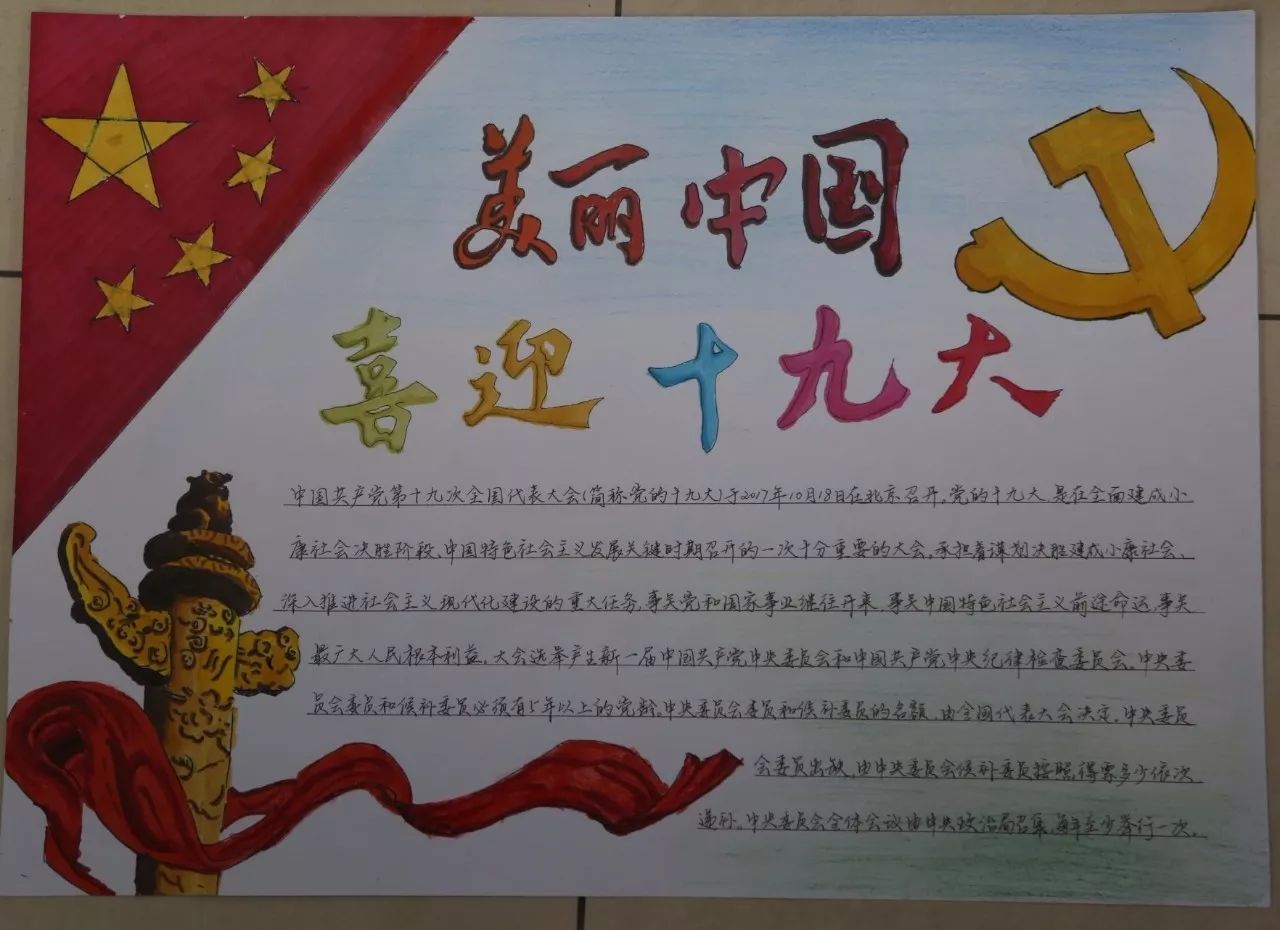 美丽中国
喜迎十九大
中国共产党第十九次全国代表大会(简称党的十九大)于2017年10月18日在北京召开。党的十九大是在全面建成小
康社会决胜阶段、中国特色社会主义发展关键时期召开的一次十分重要的大会。承担着谋划决胜建成小康社会、
深入推进社会主义现代化建设的重大任务，事关党和国家事业继往开来，事关中国特色社会主义前途命运，事关
最广大人民根本利益。大会选举产生新一届中国共产党中央委员会和中国共产党中央纪律检查委员会。中央委
员会委员和候补委员必须有5年以上的党龄。中央委员会委员和候补委员的名额，由全国代表大会决定。中央委员
会委员出缺，由中央委员会候补委员按照得票多少依次
递补。中央委员会全体会议由中央政治局召集，每年至少举行一次。